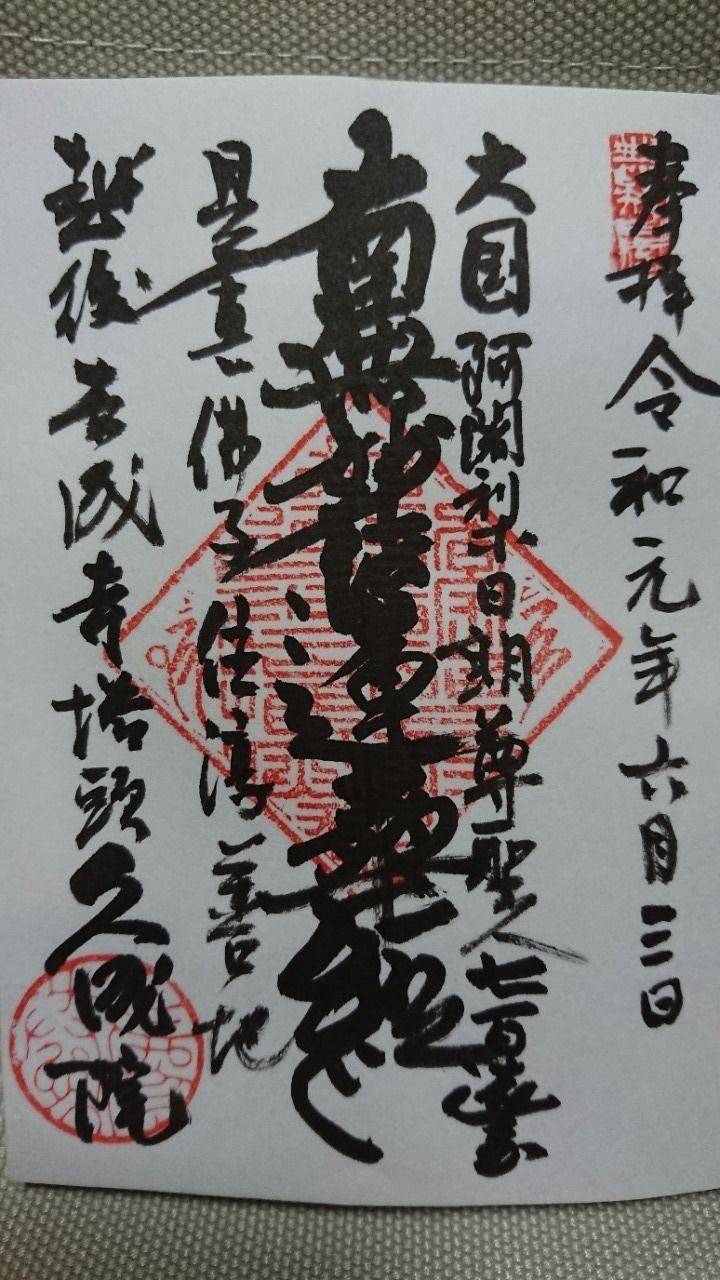 奉拝 令和元年六月三日
大国阿闍梨日朗尊聖人七百遠忌
南無妙法蓮華経
是真佛子住淳善地
越後本成寺塔頭久成院